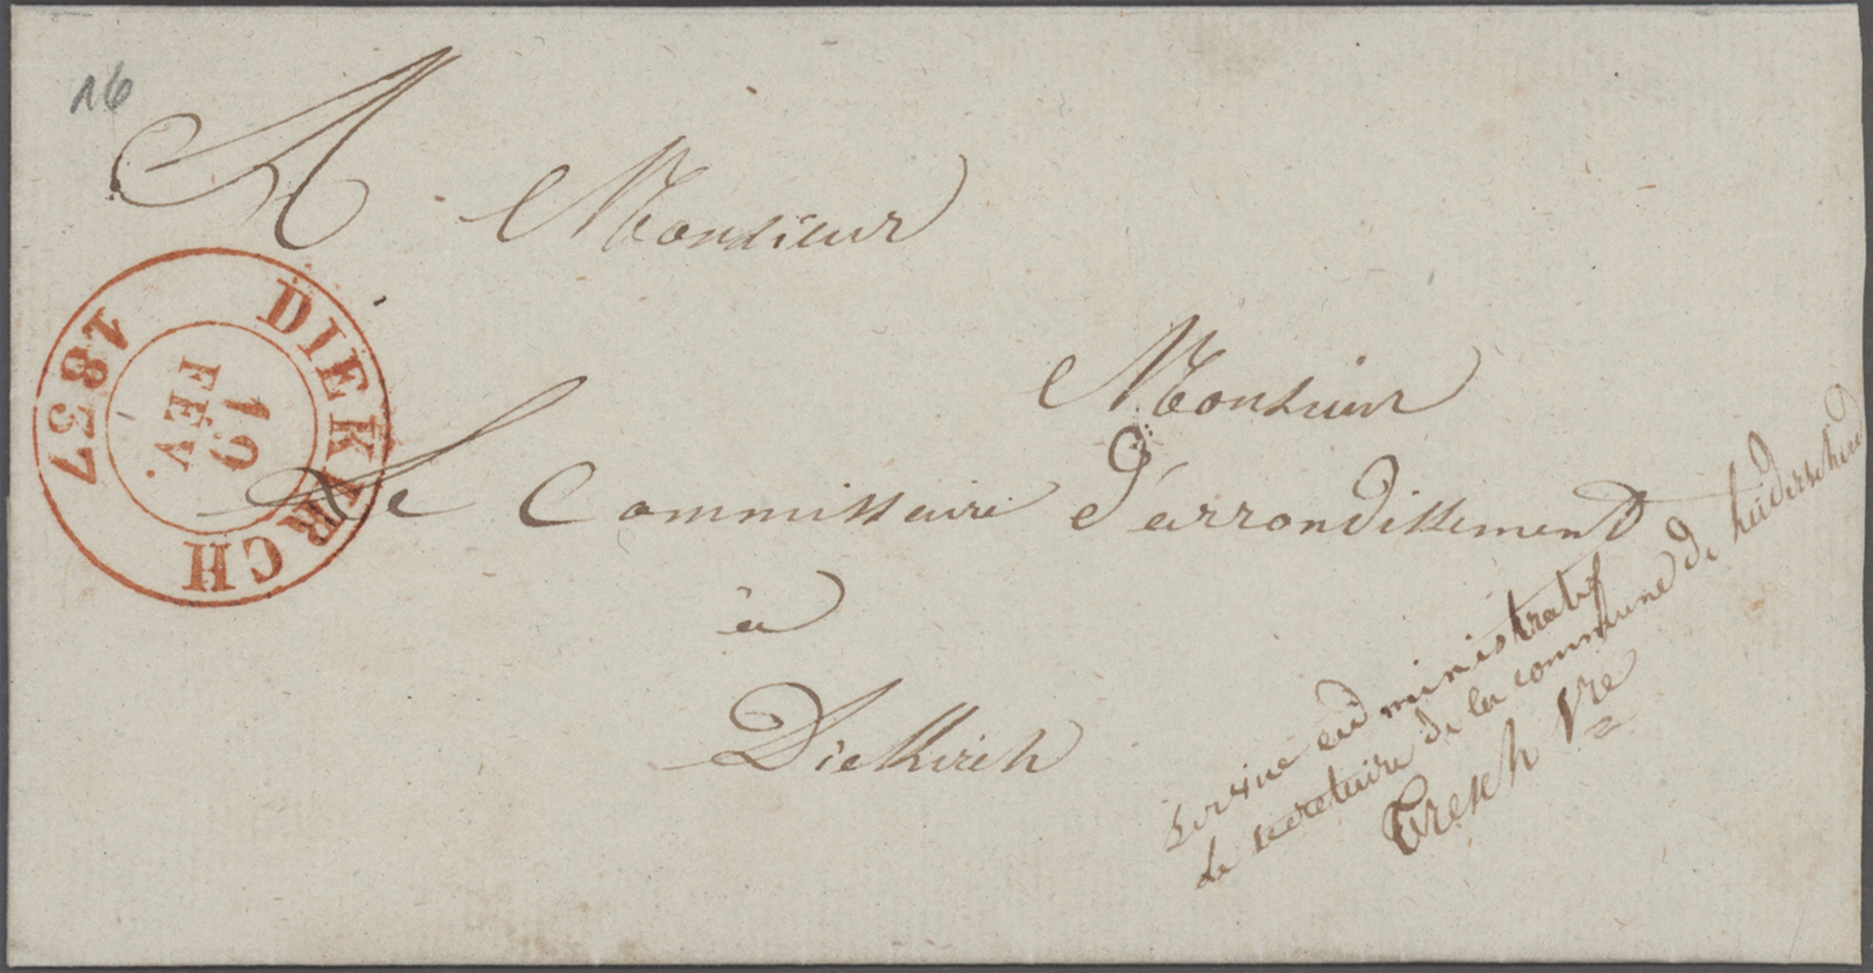 16
A Monsieur
Monsieur
Le Commissaire d'arrondissement
à
Diekirch
DIEKIRCH
1837
FEV.
service administratif
le secretaire de la commune de heiderscheid